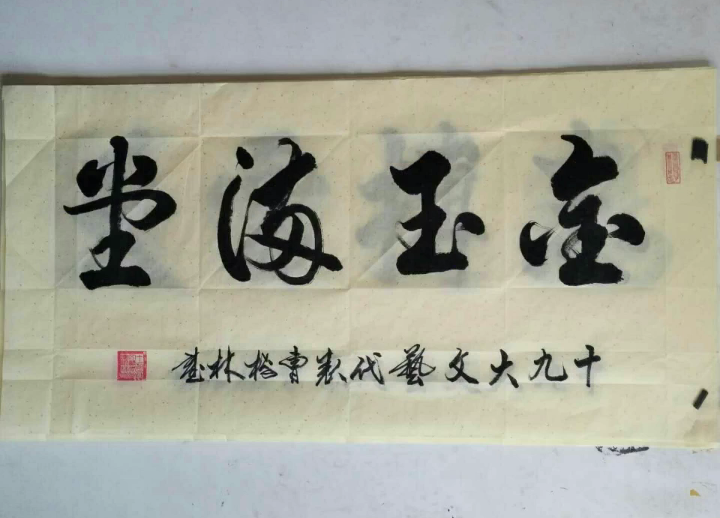 金玉满堂
十九大文藝代表曹林書